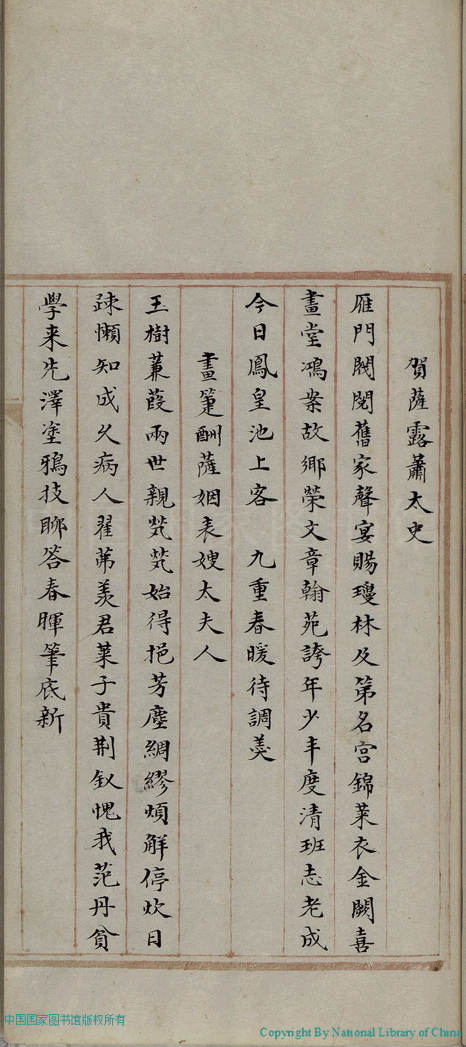 賀薩露蕭太史
雁門閥閱舊家聲宴賜瓊林及第名宫錦萊衣金闕喜
畫堂鴻案故鄉榮文章翰苑誇年少丰度清班志老成
今日鳳皇池上客　九重春暖待調羹
畫箑酬薩姻表嫂太夫人
玉樹蒹葭兩世親茕茕始得挹芳塵綢繆煩觧停炊日
疎懶知成久病人翟茀羡君萊子貴荆釵愧我范丹貧
學来先澤塗鴉技聊答春暉筆底新
中国国家图书馆版权所有
Copyright By National Library of China